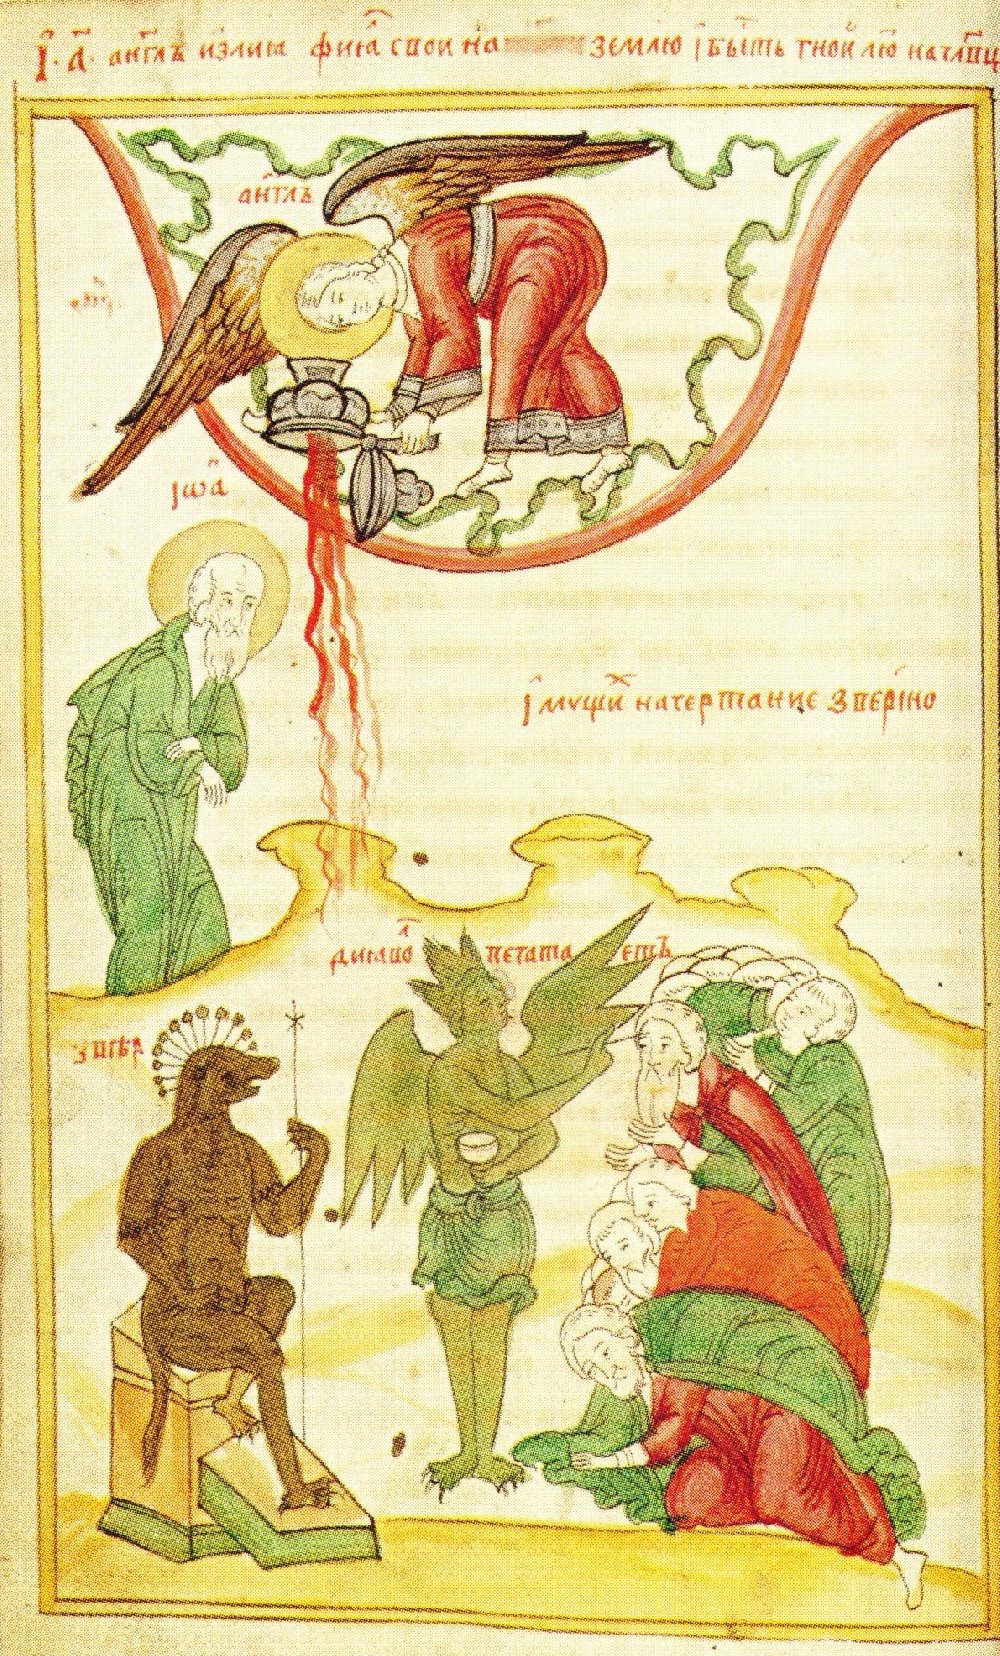 І҆. А҃. ан҃глъ излиꙗ фиꙗ҆ свои на землю і бы́сть гной лю҆ начл҃вц
ан҃глъ
іѡ҃а
і҆мущи̾ начертание ꙁвѣріно
диꙗво᷉ печатаетъ
ꙁвѣр